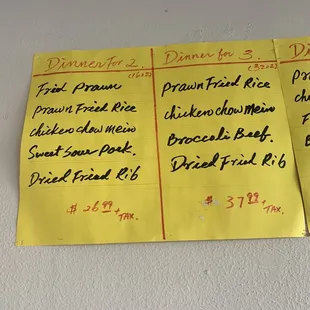 Dinner For 2.
(1602)
Fried Prawn
Prawn Fried Rice
chicken chow mein
Sweet Sour Pork.
Dried Fried Rib
$ 26.99 + TAX.
Dinner for 3.
Prawn Fried Rice
chicken chow mein
Broccoli Beef.
Dried Fried Rib
$ 37.99 + TAX.
Di